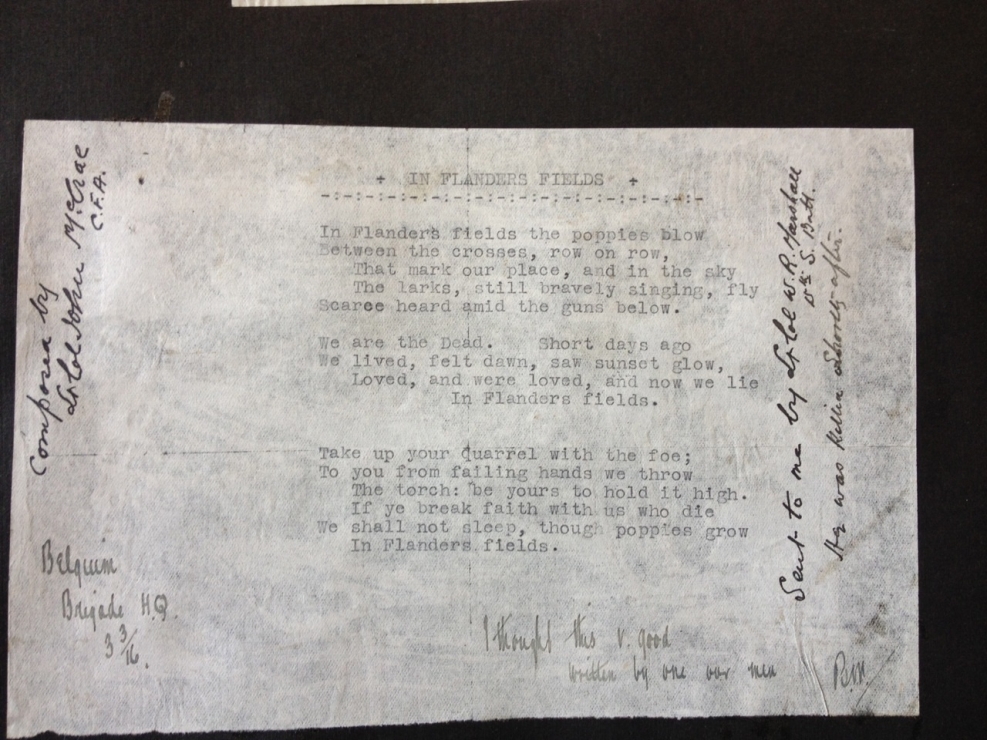 + IN FLANDERS FIELDS +
-:-:-:-:-:-:-:-:-:-:-:-:-:-:-
In Flanders fields the poppies blow
Between the crosses, row on row,
That mark our place, and in the sky
The larks, still bravely singing, fly
Scarce heard amid the guns below.
We are the Dead. Short days ago
We lived, felt dawn, saw sunset glow,
Loved, and were loved, and now we lie
In Flanders fields.
Take up your quarrel with the foe;
To you from failing hands we throw
The torch: be yours to hold it high.
If ye break faith with us who die
We shall not sleep, though poppies grow
In Flanders fields.
Composed by
Lt Col John McCrae
C.F.A.
Belgium
Brigade H.Q.
3 3/16.
I thought this v. good
written by one our men
Sent to me by Lt Col W. R. Marshall
15th S. Batt.
He was killed shortly after.